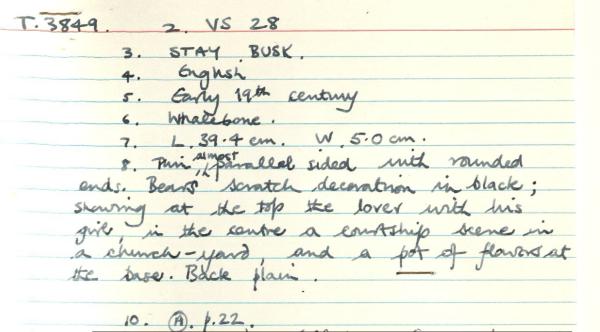 T. 3849. 2. VS 28
3. STAY BUSK.
4. English
5. Early 19th century
6. Whalebone.
7. L. 39.4 cm. W. 5.0 cm.
8. Thin, almost parallel sided with rounded
ends. Bears scratch decoration in black;
showing at the top the lover with his
girl, in the centre a courtship scene in
a church-yard, and a pot of flowers at
the base. Back plain.
10. A. p.22.